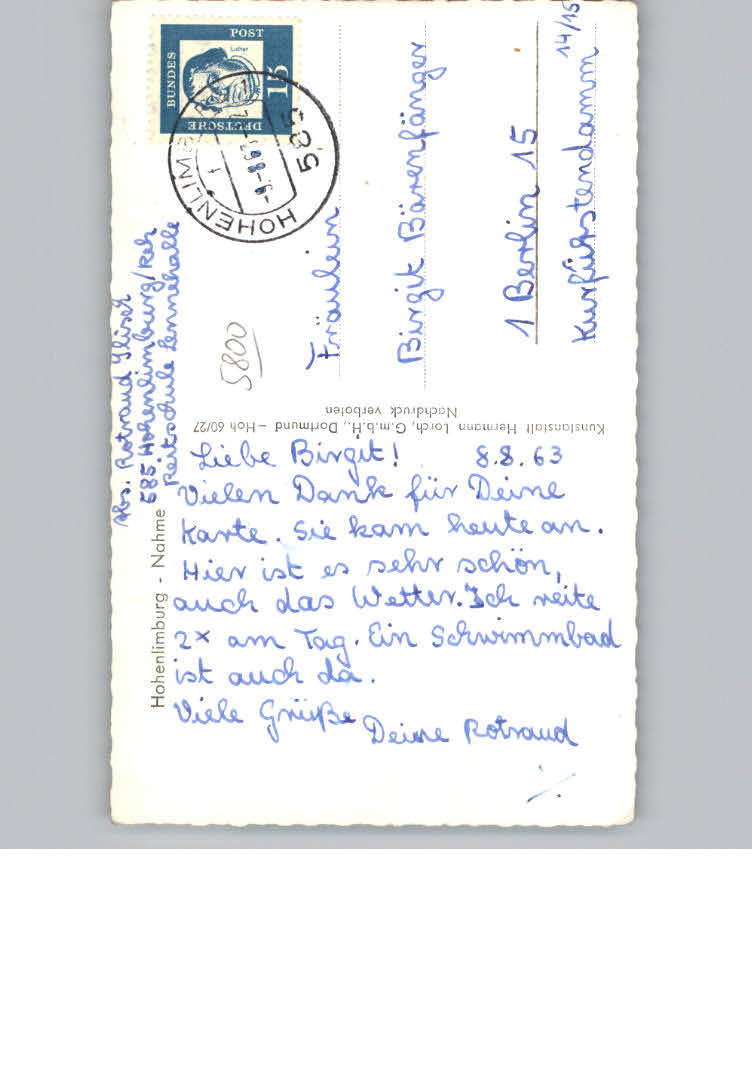 Liebe Birgit! 8.8.63
Vielen Dank für Deine
Karte. Sie kam heute an.
Hier ist es sehr schön,
auch das Wetter. Ich reite
2x am Tag. Ein Schwimmbad
ist auch da.
Viele Grüße
Deine Rotraud
Hohenlimburg - Nahme
Abs. Rotraud
585 Hohenlimburg/
Reitschule Lennehalle
5800
Fräulein
Birgit Bärenfänger
1 Berlin 15
Kurfürstendamm
14/15
Kunstanstalt Hermann Lorch, G.m.b.H., Dortmund – Hoh 60/27
Nachdruck verboten
DEUTSCHE
BUNDES
POST
Luther
15
HOHENLIMB
585